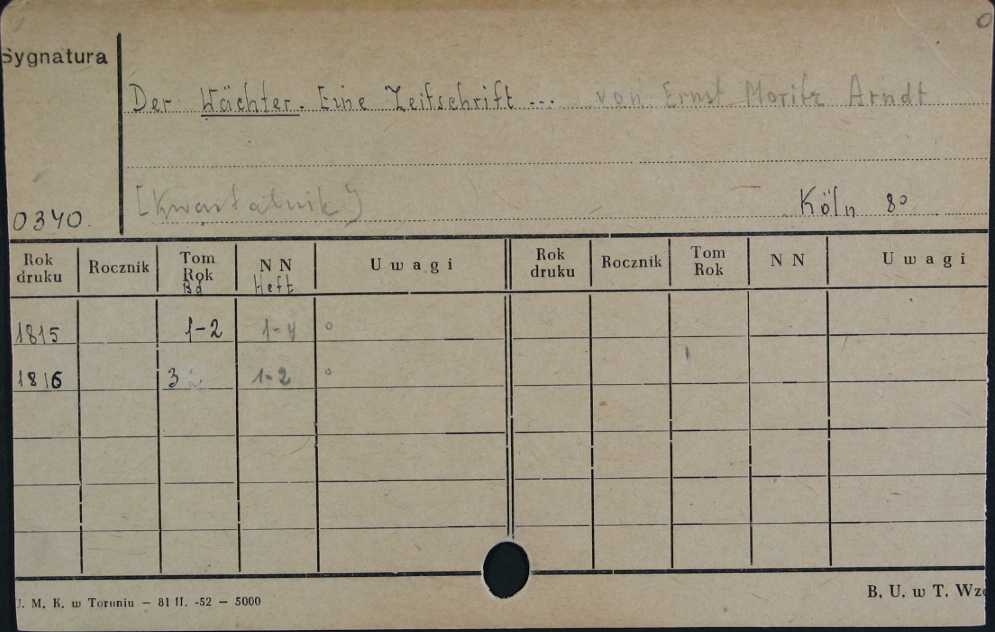 0
Sygnatura
Der Wächter. Eine Zeitschrift ... von Ernst Moritz Arndt
[Kwartalnik]
Köln 8°
0340.
Rok druku Rocznik Tom Rok Bd NN Heft Uwagi Rok druku Rocznik Tom Rok NN Uwagi
1815 1-2 1-4 °
1816 3 1-2 °
U. M. K. w Toruniu — 81 II. -52 — 5000
B. U. w T.